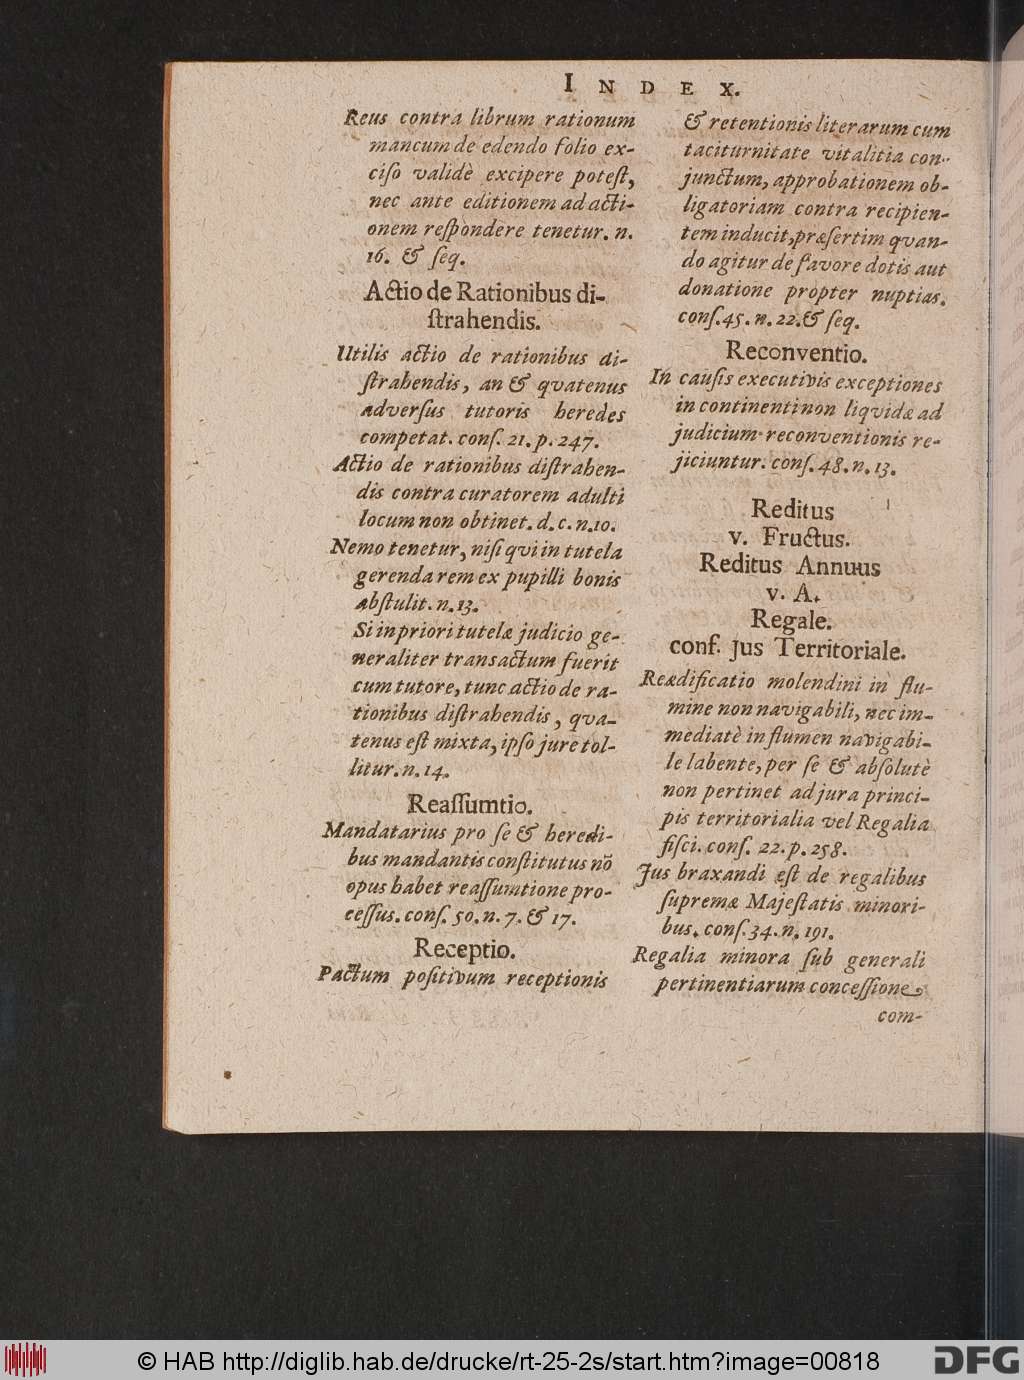 INDEX.
Reus contra librum rationum
mancum de edendo folio ex-
ciſo validè excipere poteſt,
nec ante editionem ad acti-
onem reſpondere tenetur. n.
16. & ſeq.
Actio de Rationibus di-
ſtrahendis.
Utilis actio de rationibus di-
ſtrahendis, an & qvatenus
adverſus tutoris heredes
competat. conſ. 21. p. 247.
Actio de rationibus diſtrahen-
dis contra curatorem adulti
locum non obtinet. d. c. n. 10.
Nemo tenetur, niſi qui in tutela
gerenda rem ex pupilli bonis
abſtulit. n. 13.
Si in priori tutelæ judicio ge-
neraliter transactum fuerit
cum tutore, tunc actio de ra-
tionibus diſtrahendis, qva-
tenus eſt mixta, ipſo jure tol-
litur. n. 14.
Reaſſumtio.
Mandatarius pro ſe & heredi-
bus mandantis conſtitutus nō
opus habet reaſſumtione pro-
ceſſus. conſ. 50. n. 7. & 17.
Receptio.
Pactum poſitivum receptionis
& retentionis literarum cum
taciturnitate vitalitia con-
junctum, approbationem ob-
ligatoriam contra recipien-
tem inducit, præſertim qvan-
do agitur de favore dotis aut
donatione propter nuptias.
conſ. 45. n. 22. & ſeq.
Reconventio.
In cauſis executivis exceptiones
in continenti non liqvidæ ad
judicium reconventionis re-
jiciuntur. conſ. 48. n. 13.
Reditus
v. Fructus.
Reditus Annuus
v. A.
Regale.
conf. Jus Territoriale.
Reædificatio molendini in flu-
mine non navigabili, nec im-
mediatè in flumen navigabi-
le labente, per ſe & abſolutè
non pertinet ad jura princi-
pis territorialia vel Regalia
fiſci. conſ. 22. p. 258.
Jus braxandi eſt de regalibus
ſupremæ Majeſtatis minori-
bus. conſ. 34. n. 191.
Regalia minora ſub generali
pertinentiarum conceſſione
com-
© HAB http://diglib.hab.de/drucke/rt-25-2s/start.htm?image=00818
DFG